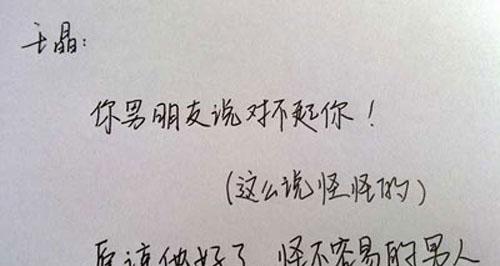 王晶：
你男朋友说对不起你！
(这么说怪怪的)
原谅他好了，怪不容易的男人